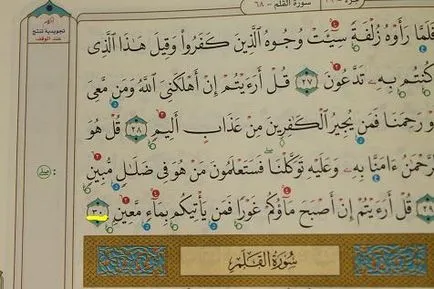 سورة القلم - ٦٨
فَلَمَّا رَأَوْهُ زُلْفَةً سِيٓـَٔتْ وُجُوهُ الَّذِينَ كَفَرُوا وَقِيلَ هَٰذَا الَّذِى
كُنتُم بِهِۦ تَدَّعُونَ ٢٧ قُلْ أَرَءَيْتُمْ إِنْ أَهْلَكَنِىَ اللَّهُ وَمَن مَّعِىَ
أَوْ رَحِمَنَا فَمَن يُجِيرُ الْكَٰفِرِينَ مِنْ عَذَابٍ أَلِيمٍ ٢٨ قُلْ هُوَ
الرَّحْمَٰنُ ءَامَنَّا بِهِۦ وَعَلَيْهِ تَوَكَّلْنَا فَسَتَعْلَمُونَ مَنْ هُوَ فِى ضَلَٰلٍ مُّبِينٍ
٢٩ قُلْ أَرَءَيْتُمْ إِنْ أَصْبَحَ مَآؤُكُمْ غَوْرًا فَمَن يَأْتِيكُم بِمَآءٍ مَّعِينٍ ٣٠
سُورَةُ الْقَلَمِ